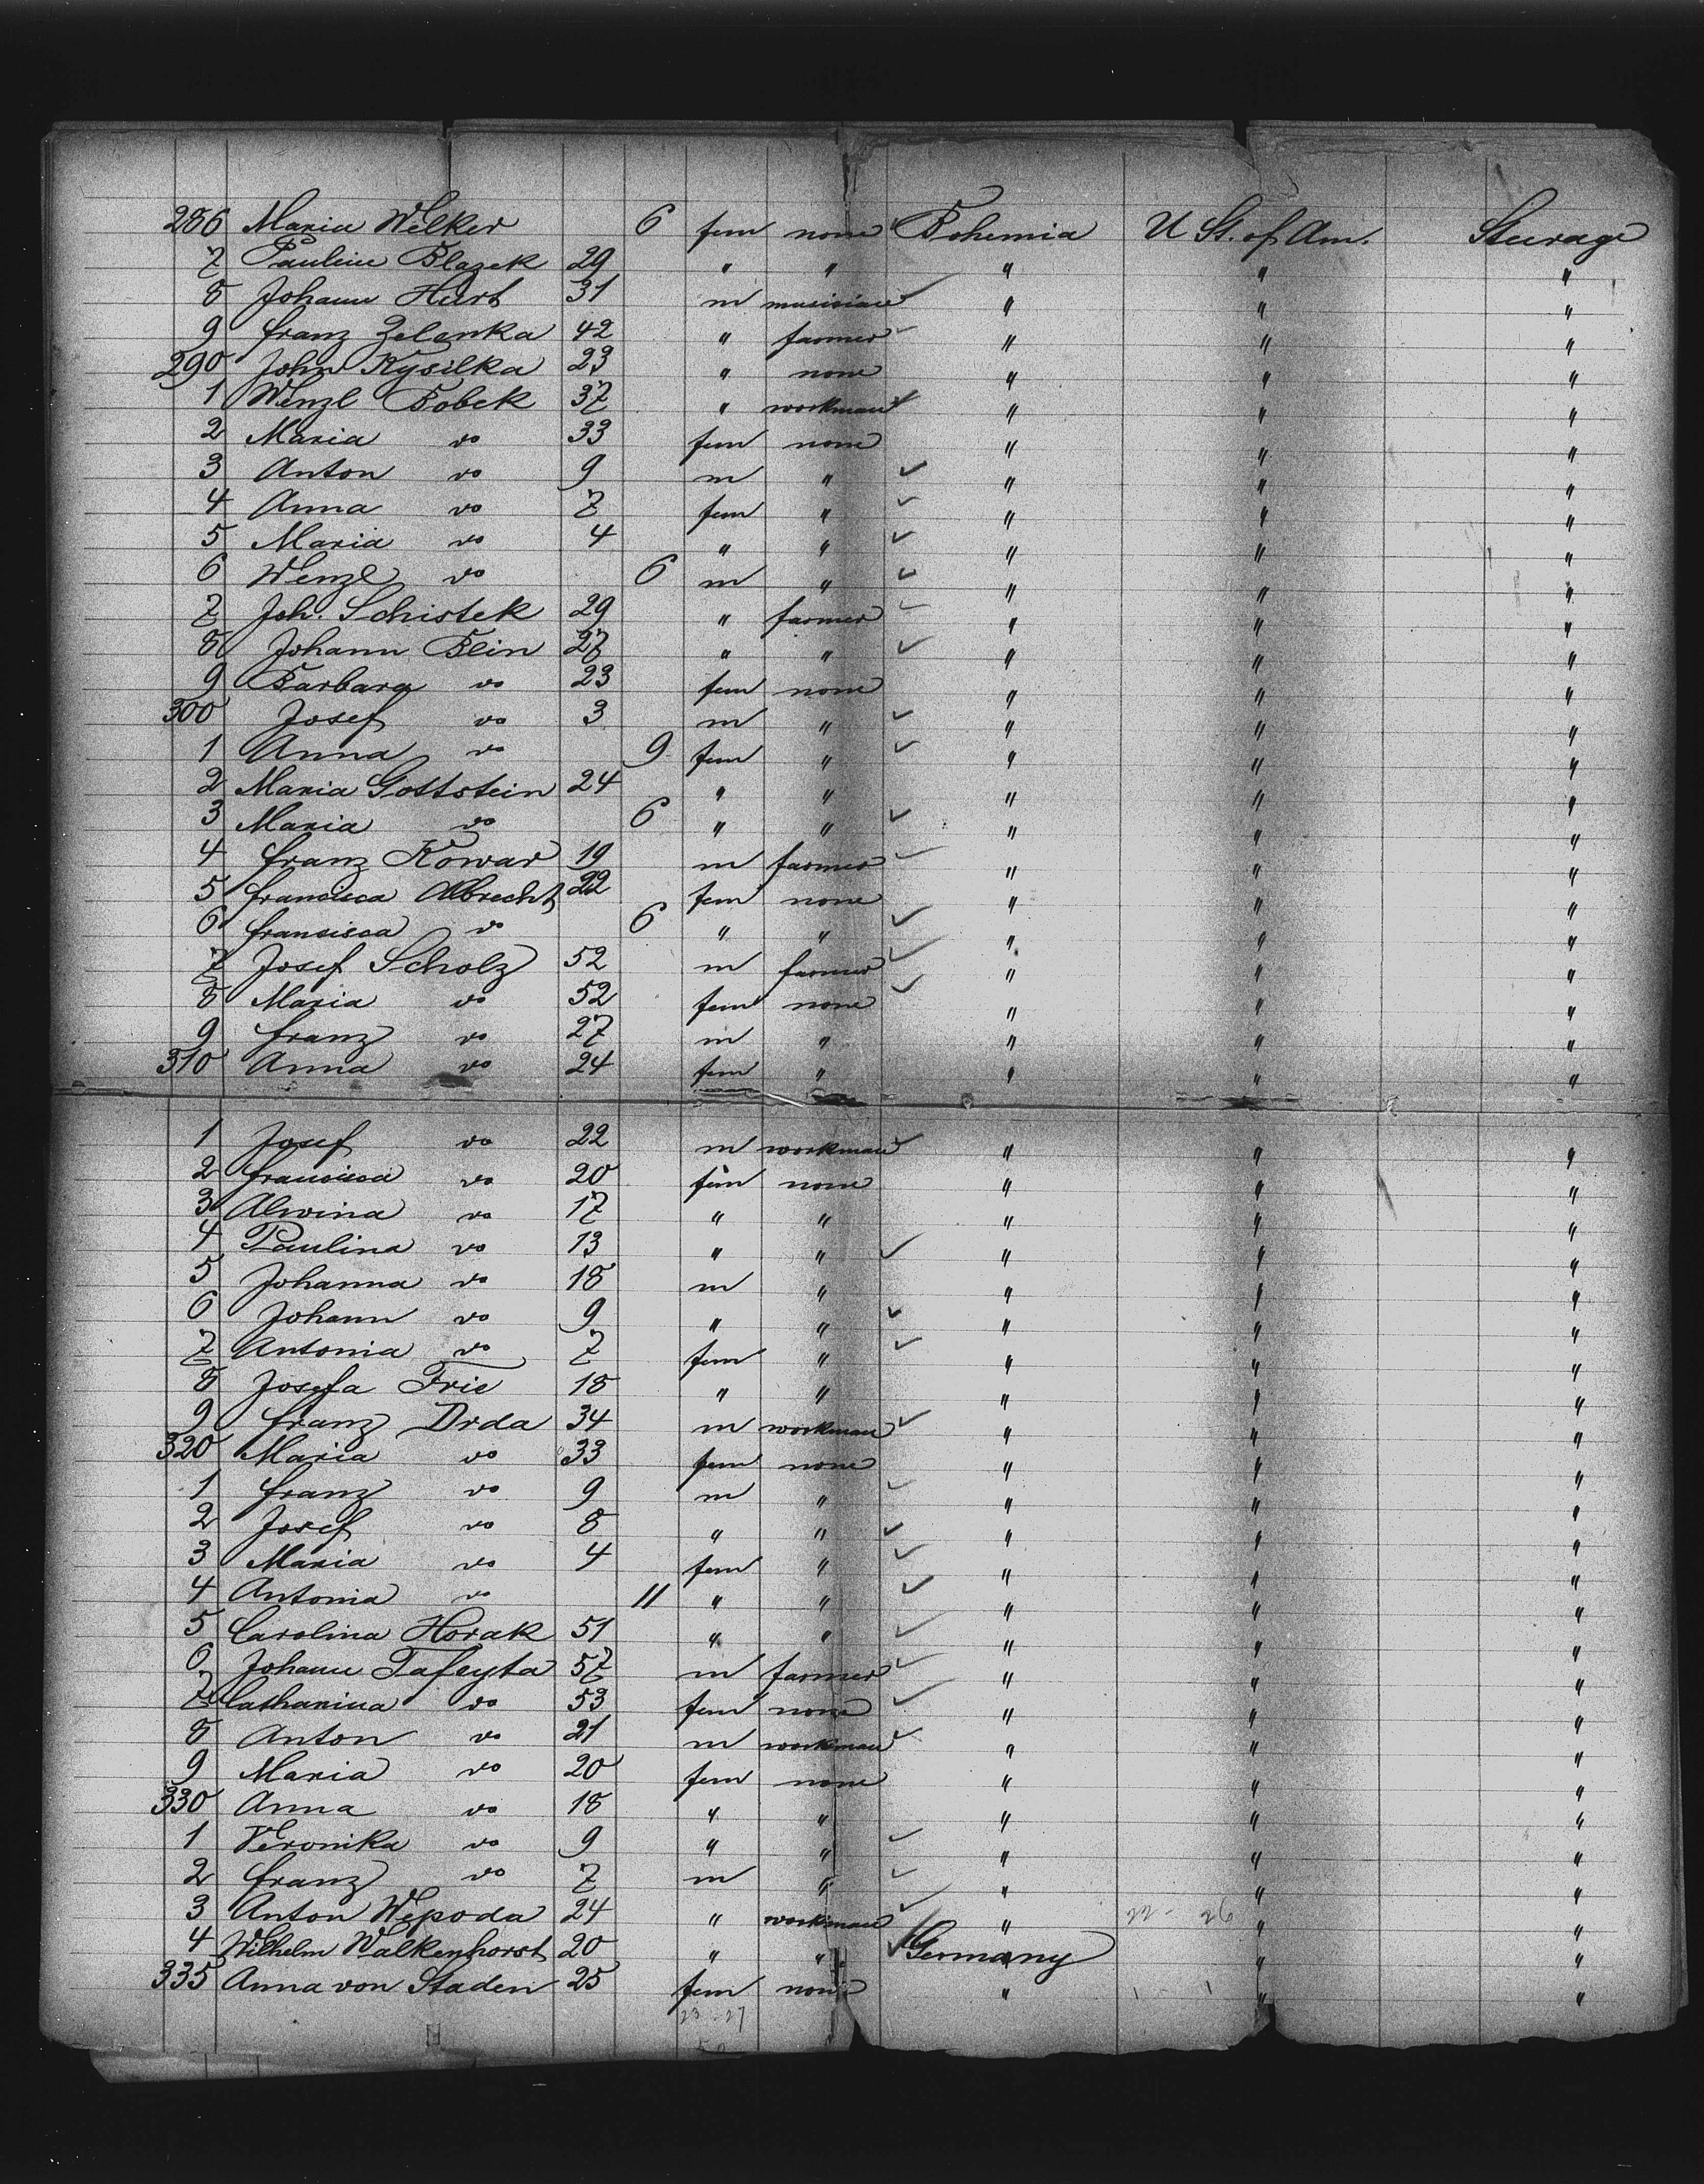 286 Maria Welker 6 fem none Bohemia U St. of Am. Steerage
7 Pauline Blazek 29 " " " " "
8 Johann Hurt 31 m musician " " "
9 Franz Zelenka 42 " farmer " " "
290 John Kysilka 23 " none " " "
1 Wenzl Bobek 37 " workman " " "
2 Maria do 33 fem none " " "
3 Anton do 9 m " " " "
4 Anna do 7 fem " " " "
5 Maria do 4 " " " " "
6 Wenzl do 6 m " " " "
7 Joh. Schistek 29 " farmer " " "
8 Johann Blin 27 " " " " "
9 Barbara do 23 fem none " " "
300 Josef do 3 m " " " "
1 Anna do 9 fem " " " "
2 Maria Gottstein 24 " " " " "
3 Maria do 6 " " " " "
4 Franz Kowar 19 m farmer " " "
5 Francisca Albrecht 22 fem none " " "
6 Francisca do 6 " " " " "
7 Josef Scholz 52 m farmer " " "
8 Maria do 52 fem none " " "
9 Franz do 27 m " " " "
310 Anna do 24 fem " " " "
1 Josef do 22 m workman " " "
2 Francisca do 20 fem none " " "
3 Alwina do 17 " " " " "
4 Paulina do 13 " " " " "
5 Johanna do 18 m " " " "
6 Johann do 9 " " " " "
7 Antonia do 7 fem " " " "
8 Josefa Fric 18 " " " " "
9 Franz Drda 34 m workman " " "
320 Maria do 33 fem none " " "
1 Franz do 9 m " " " "
2 Josef do 8 " " " " "
3 Maria do 4 fem " " " "
4 Antonia do 11 " " " " "
5 Carolina Horak 51 " " " " "
6 Johann Tafeyta 57 m farmer " " "
7 Catharina do 53 fem none " " "
8 Anton do 21 m workman " " "
9 Maria do 20 fem none " " "
330 Anna do 18 " " " " "
1 Veronika do 9 " " " " "
2 Franz do 7 m " " " "
3 Anton Wepoda 24 " workman " 22 - 26 " "
4 Wilhelm Walkenhorst 20 " " Germany " "
335 Anna von Staden 25 fem none " " "
23-27